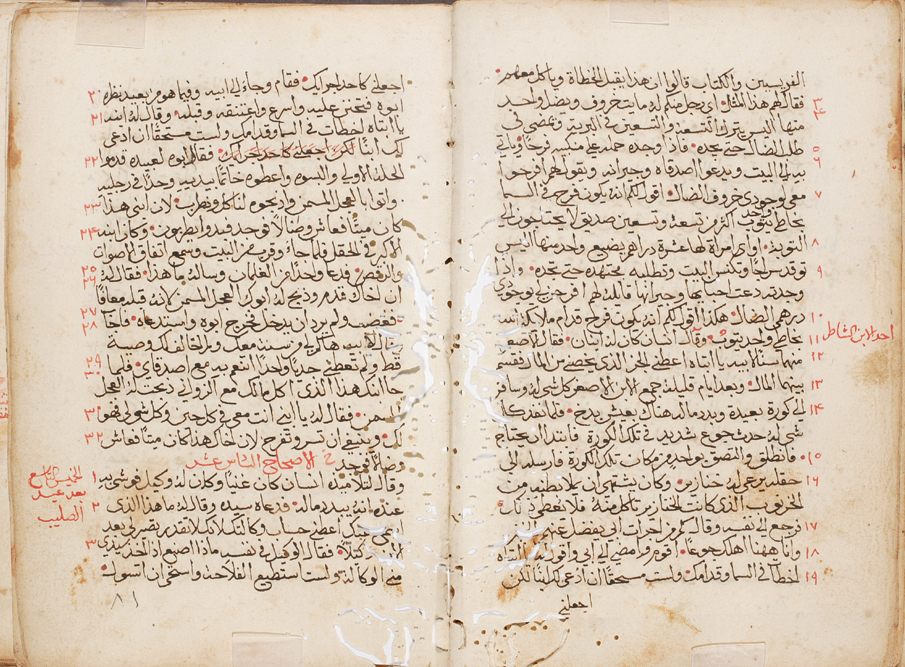 الفريسيين والكتاب قايلين ان هذا يقبل الخطاة وياكل معهم
٣ فقال لهم هذا المثل اي رجل منكم له مايت خروف ويضل واحد
٤ منها اليس يترك التسعة والتسعين في البرية ويمضي في
٥ طلب الضال حتى يجده فاذا وجده حمله على منكبيه فرحًا وياتي
٦ به الى البيت ويدعوا اصدقاه وجيرانه ويقول لهم افرحوا
٧ معي لوجودي خروفي الضال اقول لكم انه يكون فرح في السما
بخاطي واحد يتوب اكثر من تسعة وتسعين صديق لا يحتاجون الى
٨ التوبة او اي امراة لها عشرة دراهم يضيع واحد منها اليس
٩ توقد سراجًا وتكنس البيت وتطلبه مجتهده حتى تجده واذا
وجدته دعت احبابها وجيرانها قايلة لهم افرحن لي بوجودي
١٠ درهمي الضال هكذا اقول لكم انه يكون فرح قدام ملايكة الله
١١ بخاطي واحد يتوب وقال انسان كان له ابنان فقال الاصغر
احد الابن الشاطر
١٢ منهما لابيه يا ابتاه اعطني الجزء الذي يخصني من المال فقسم
١٣ بينهما المال وبعد ايام قليلة جمع الابن الاصغر كل شي له وسافر
١٤ الى كورة بعيدة وبدد ماله هناك بعيش بدخ فلما نفد كل
شي له حدث جوع شديد في تلك الكورة فابتدا ان يحتاج
١٥ فانطلق والتصق بواحد من مكان تلك الكورة فارسله الى
١٦ حقله يرعى له خنازير وكان يشتهي ان يملا بطنه من
الخرنوب الذي كانت الخنازير تاكل منه فلا يعطى ذلك
١٧ فرجع الى نفسه وقال كم من اجرات ابي يفضل عنهم الخبز
١٨ وانا ههنا اهلك جوعًا اقوم وامضي الى ابي واقول له يا ابتاه
١٩ اخطات في السما وقدامك ولست مستحقًا ان ادعى لك ابنًا لكن
اجعلني
اجعلني كاحد اجرايك فقام وجاء الى ابيه وفيما هو من بعيد نظره
٢٠ ابوه فتحنن عليه واسرع واعتنقه وقبله وقال له ابنه
٢١ يا ابتاه اخطات في السما وقدامك ولست مستحقًا ان ادعى
٢٢ لك ابنًا لكن اجعلني كاحد اجرايك فقال ابوه لعبيده قدموا
الحلة الاولى والبسوه واعطوه خاتمًا بيديه وحذاء في رجليه
٢٣ واتوا بالعجل المسمن واذبحوه لناكل ونطرب لان ابني هذا
٢٤ كان ميتًا فعاش وضالًا فوجد فبدوا يطربون وكان ابنه
الاكبر في الحقل فلما جاء وقرب من البيت وسمع اتفاق الاصوات
٢٥ والرقص فدعا واحد من الغلمان وساله ما هذا فقال له
٢٦ ان اخاك قدم وذبح له ابوك العجل المسمن لانه قبله معافًا
٢٧ فغضب ولم يرد ان يدخل فخرج ابوه واستدعاه فاجاب
٢٨ وقال لابيه هاكم لي من سنين معك ولم اخالف لك وصية
٢٩ قط ولم تعطني جديًا واحدًا اتنعم به مع اصدقاي فلما
٣٠ جا ابنك هذا الذي اكل مالك مع الزواني ذبحت له العجل
٣١ المسمن فقال له يا ابني انت معي في كل حين وكل شي لي فهو
٣٢ لك وينبغي ان نسر ونفرح لان اخاك هذا كان ميتًا فعاش
وضالا فوجد الاصحاح السادس عشر
١ وقال لتلاميذه انسان كان غنيًا وكان له وكيل فوشي به
الخميس الرابع
بعد عيد
الصليب
٢ عنده انه يبدد ماله فدعاه سيده وقال له ما هذا الذي
اسمع عنك اعطني حساب وكالتك لانك لا تقدر تصير لي بعد
٣ الان وكيلًا فقال الوكيل في نفسه ماذا اصنع اذا اخذ سيدي
مني الوكالة ولست استطيع الفلاحة واستحي ان اتسول
٨١